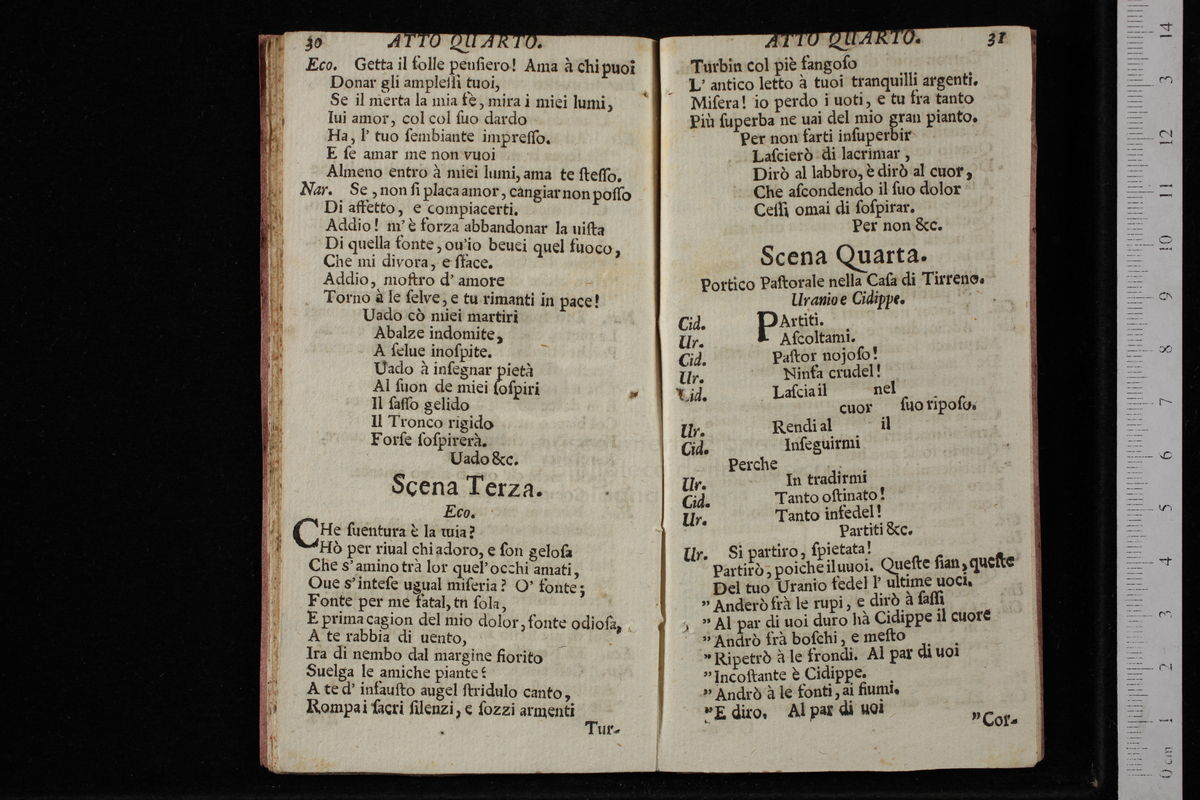 30 ATTO QUARTO.
Eco. Getta il folle penſiero! Ama à chi puoi
Donar gli ampleſſi tuoi,
Se il merta la mia fè, mira i miei lumi,
Iui amor, col col ſuo dardo
Ha, l' tuo ſembiante impreſſo.
E ſe amar me non vuoi
Almeno entro à miei lumi, ama te ſteſſo.
Nar. Se, non ſi placa amor, cangiar non poſſo
Di affetto, e compiacerti.
Addio! m'è forza abbandonar la uiſta
Di quella fonte, ou'io beuei quel fuoco,
Che mi divora, e sface.
Addio, moſtro d' amore
Torno à le ſelve, e tu rimanti in pace!
Uado cò miei martiri
Abalze indomite,
A ſelue inoſpite.
Uado à inſegnar pietà
Al ſuon de miei ſoſpiri
Il ſaſſo gelido
Il Tronco rigido
Forſe ſoſpirerà.
Uado &c.
Scena Terza.
Eco.
CHe ſuentura è la mia?
Hò per riual chi adoro, e ſon geloſa
Che s'amino trà lor quel'occhi amati,
Oue s'inteſe ugual miſeria? O' fonte;
Fonte per me fatal, tn ſola,
E prima cagion del mio dolor, fonte odioſa,
A te rabbia di uento,
Ira di nembo dal margine fiorito
Suelga le amiche piante:
A te d' infauſto augel ſtridulo canto,
Rompa i ſacri ſilenzi, e ſozzi armenti
Tur-
ATTO QUARTO. 31
Turbin col piè fangoſo
L' antico letto à tuoi tranquilli argenti.
Miſera! io perdo i uoti, e tu fra tanto
Più ſuperba ne uai del mio gran pianto.
Per non farti inſuperbir
Laſcierò di lacrimar,
Dirò al labbro, è dirò al cuor,
Che aſcondendo il ſuo dolor
Ceſſi omai di ſoſpirar.
Per non &c.
Scena Quarta.
Portico Paſtorale nella Caſa di Tirreno.
Uranio e Cidippe.
Cid. PArtiti.
Ur. Aſcoltami.
Cid. Paſtor nojoſo!
Ur. Ninfa crudel!
Cid. Laſcia il nel
cuor ſuo ripoſo.
Ur. Rendi al il
Cid. Inſeguirmi
Perche
Ur. In tradirmi
Cid. Tanto oſtinato!
Ur. Tanto infedel!
Partiti &c.
Ur. Si partiro, ſpietata!
Partirò, poiche il uuoi. Queſte ſian, queſte
Del tuo Uranio fedel l' ultime uoci.
" Anderò frà le rupi, e dirò à ſaſſi
" Al par di uoi duro hà Cidippe il cuore
" Andrò frà boſchi, e meſto
" Ripetrò à le frondi. Al par di uoi
" Incoſtante è Cidippe.
" Andrò à le fonti, ai fiumi.
" E diro. Al par di uoi
" Cor-
0 cm 1 2 3 4 5 6 7 8 9 10 11 12 13 14